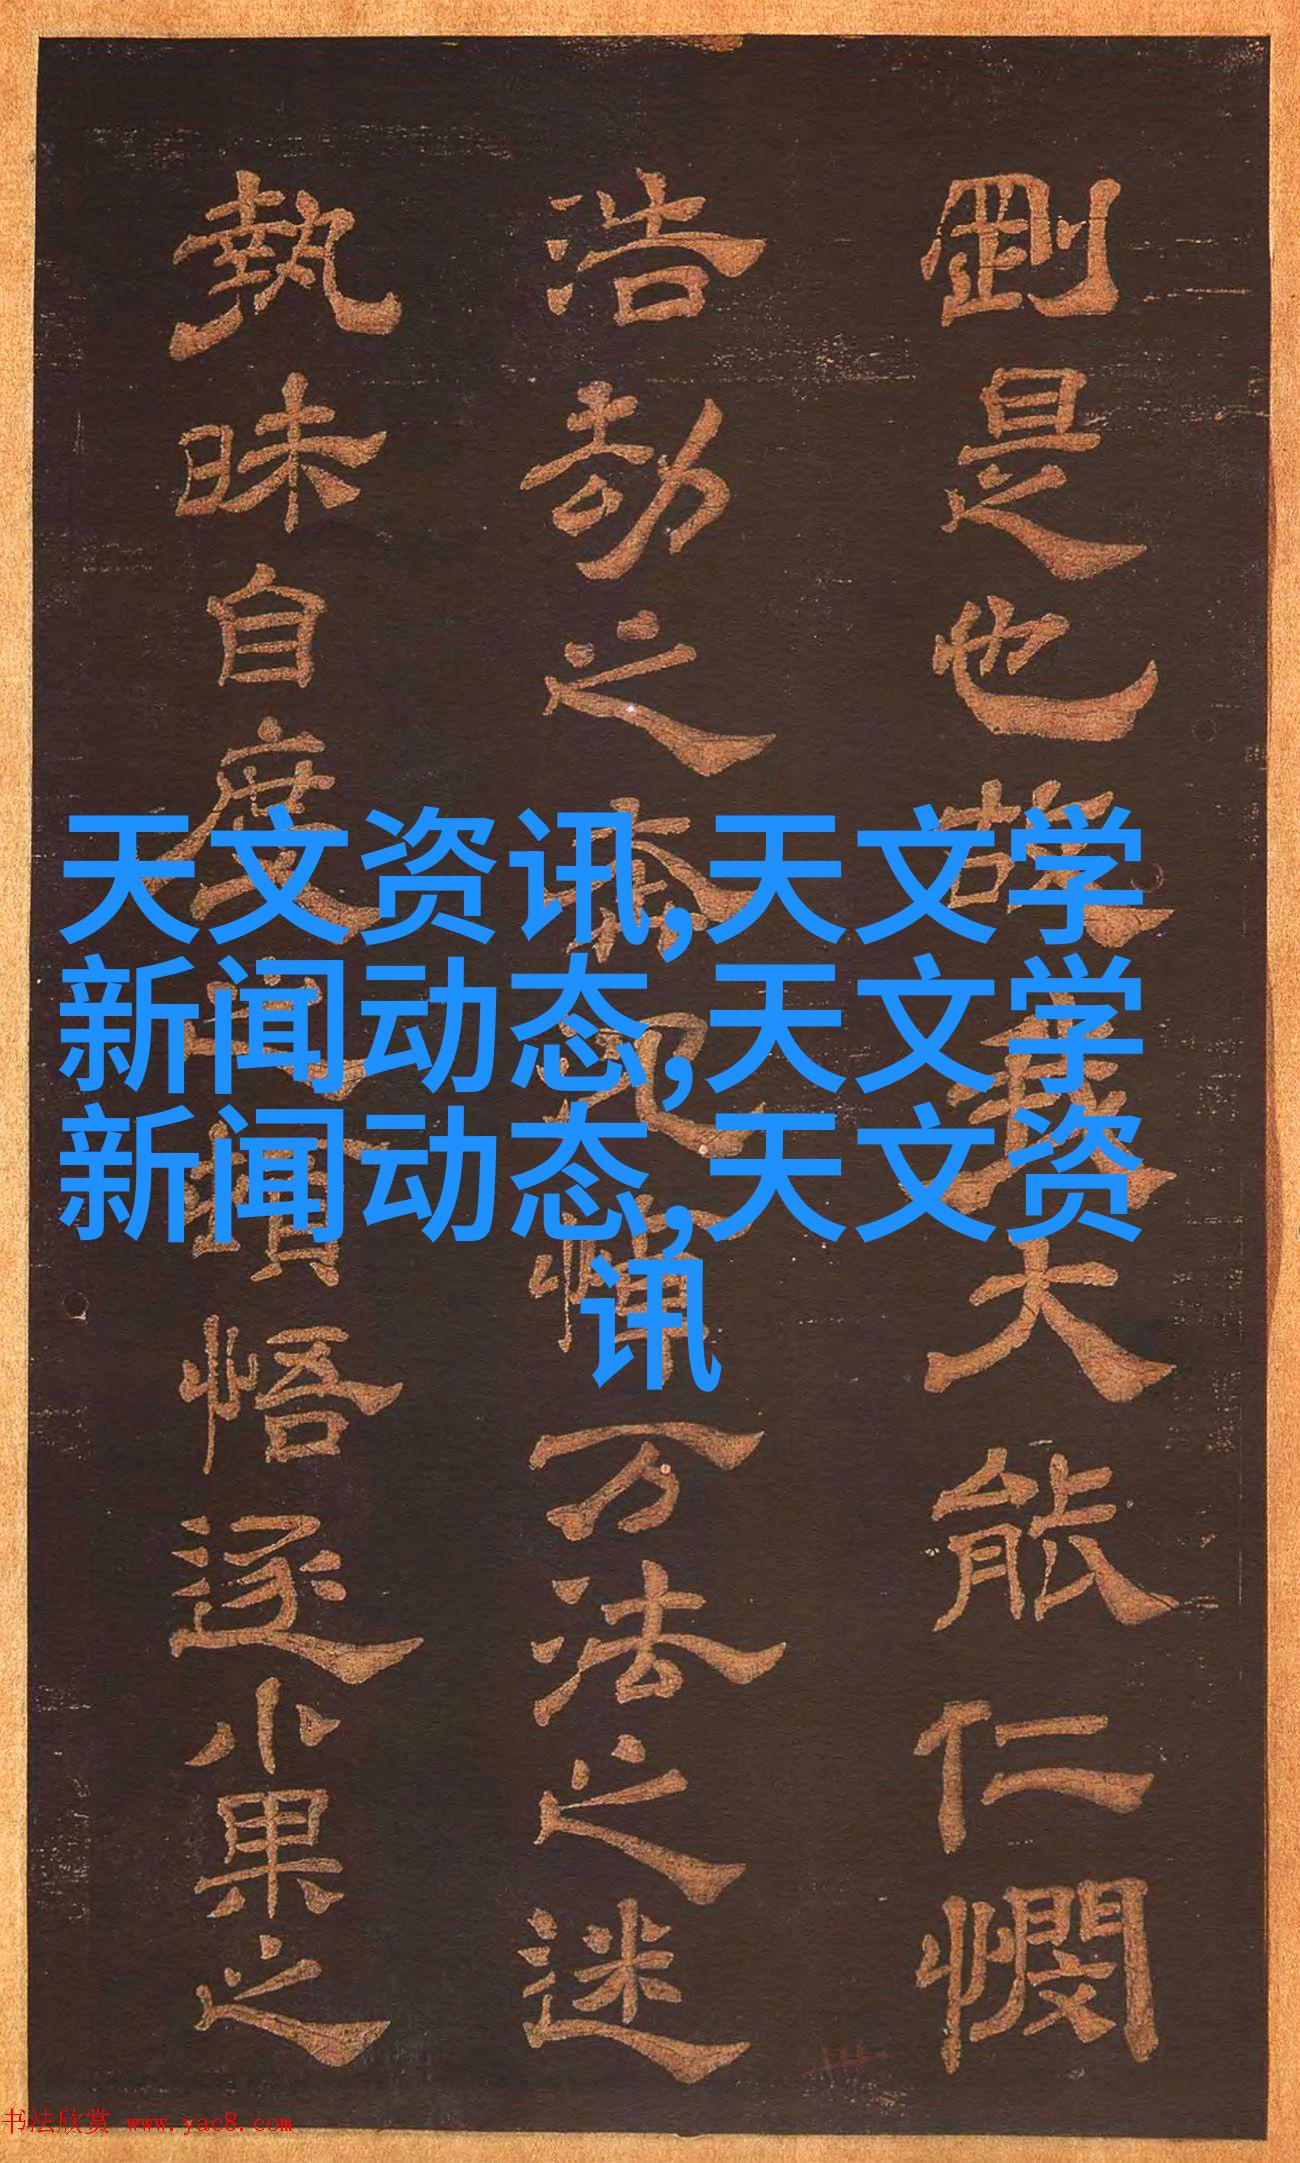 剛是也蘊義大能仁憫
浩劫之泰況惟万法之迷
執昧自度頓悟逐小果之
天文资讯,天文学
新闻动态,天文学
新闻动态,天文资
讯
书法欣赏 www.yac8.com